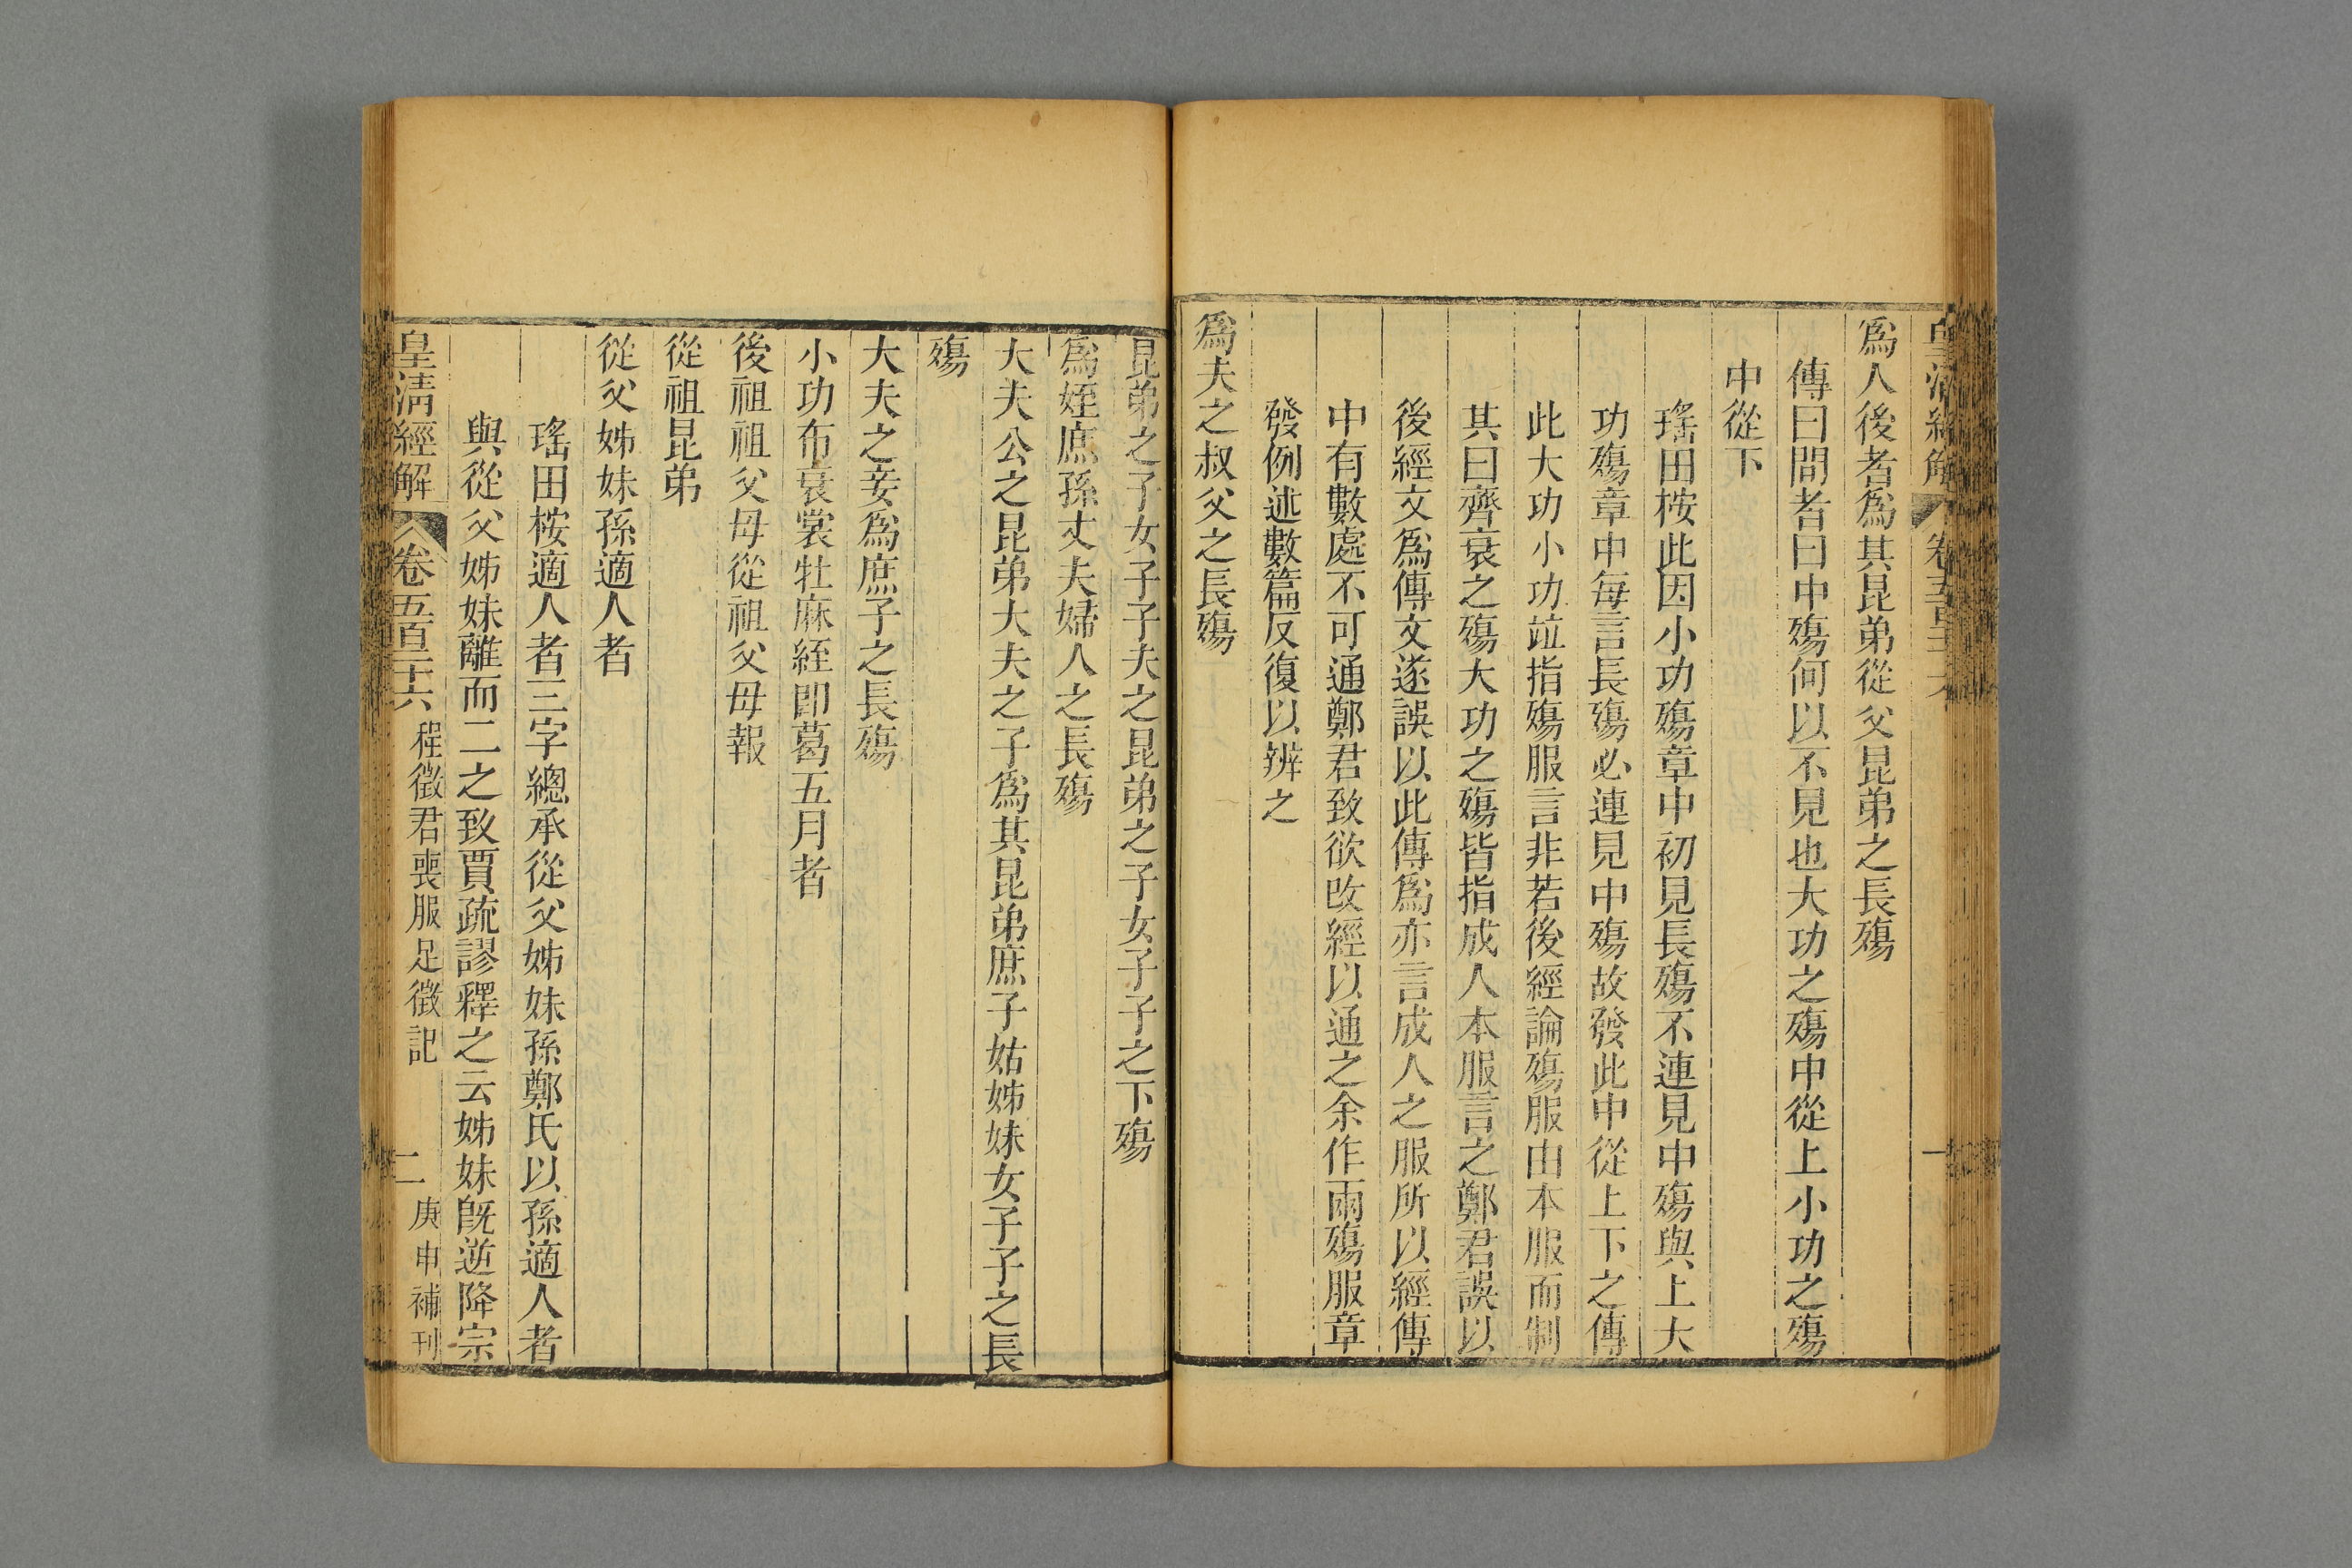 皇清經解 卷五百二十六 一
爲人後者爲其昆弟從父昆弟之長殤
傳曰問者曰中殤何以不見也大功之殤中從上小功之殤
中從下
瑤田桉此因小功殤章中初見長殤不連見中殤與上大
功殤章中每言長殤必連見中殤故發此中從上下之傳
此大功小功竝指殤服言非若後經論殤服由本服而制
其曰齊衰之殤大功之殤皆指成人本服言之鄭君誤以
後經文爲傳文遂誤以此傳爲亦言成人之服所以經傳
中有數處不可通鄭君致欲改經以通之余作兩殤服章
發例述數篇反復以辨之
爲夫之叔父之長殤
昆弟之子女子子夫之昆弟之子女子子之下殤
爲姪庶孫丈夫婦人之長殤
大夫公之昆弟大夫之子爲其昆弟庶子姑姊妹女子子之長
殤
大夫之妾爲庶子之長殤
小功布衰裳牡麻絰卽葛五月者
從祖祖父母從祖父母報
從祖昆弟
從父姊妹孫適人者
瑤田桉適人者三字總承從父姊妹孫鄭氏以孫適人者
與從父姊妹離而二之致賈疏謬釋之云姊妹旣逆降宗
皇清經解 卷五百二十六 程徵君喪服足徵記 二 庚申補刊